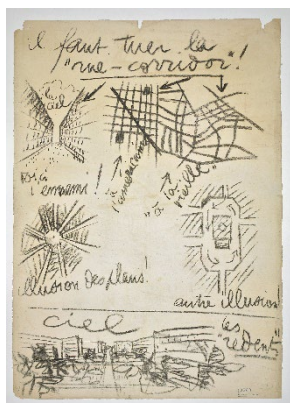 il faut tuer la
"rue-corridor"!
le ciel
voilà
l'ennemi!
à l'américaine
"à la vieille"
illusion des plans!
autre illusion!
ciel
les
"redents"